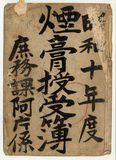 昭和十年度
煙膏授受簿
庶務課阿片係